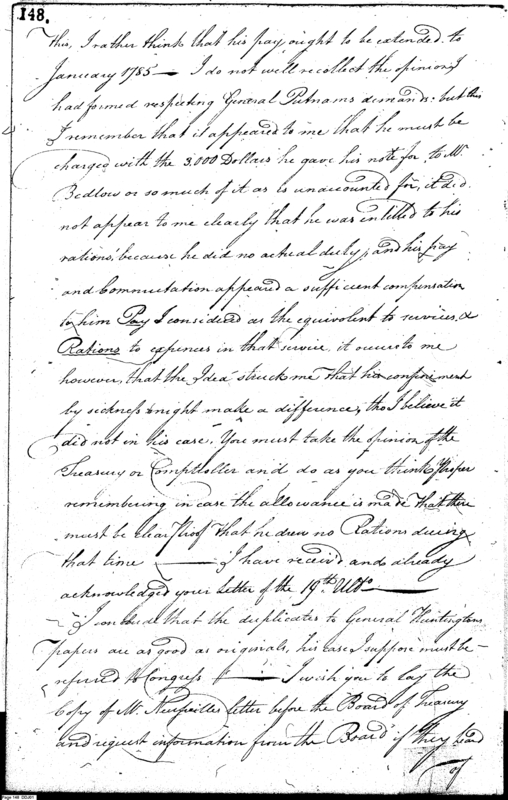 148.
This, I rather think that his pay ought to be extended to
January 1785 — I do not well recollect the opinion I
had formed respecting General Putnams demands: but this
I remember that it appeared to me that he must be
charged with the 3.000 Dollars he gave his note for to Mr.
Bedlow or so much of it as is unaccounted for, it did
not appear to me clearly that he was intitled to his
rations, because he did no actual duty, and his pay
and Commutation appeared a sufficient compensation
to him Pay I considered as the equivalent to services, &
Rations to expences in that service, it occurs to me
however, that the Idea struck me that his confinement
by sickness might make a difference, tho I believe it
did not in his case. You must take the opinion of the
Treasury or Comptroller and do as you think Proper
remembering in case the allowance is made that there
must be clear Proof that he drew no Rations during
that time — I have receiv'd and already
acknowledged your letter of the 19th. Ulto —
I conclude that the duplicates to General Huntingtons
papers are as good as originals, his case I suppose must be —
referred to Congress — I wish you to lay the
Copy of Mr. Neufvilles letter before the Board of Treasury
and request information from the Board if they heard
of
Page 148